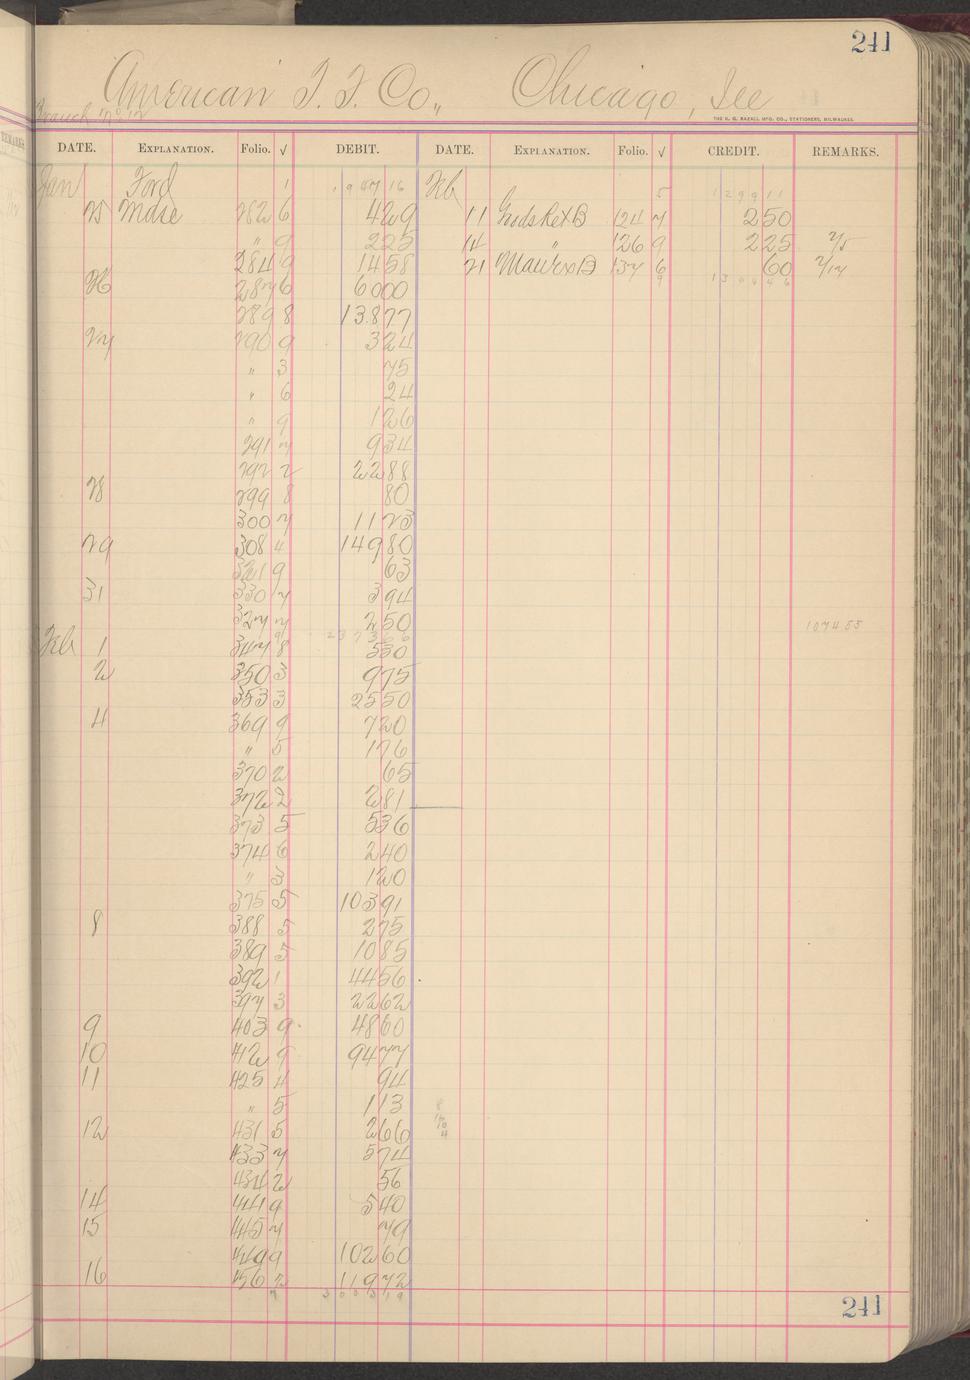 241
American T. T. Co., Chicago, Ill
Branch No 12
THE H. G. RAZALL MFG. CO., STATIONERS, MILWAUKEE.
DATE. EXPLANATION. Folio. √ DEBIT. DATE. EXPLANATION. Folio. √ CREDIT. REMARKS.
Jan Ford 1 Feb 5 129911
25 Mdse 282 6 429 11 Gds Ret B 124 7 250
" 9 225 14 " 126 9 225 2/5
284 9 1458 21 B 137 6 60 2/17
26 287 6 6000 9
289 8 13877
27 290 9 324
" 3 75
" 6 24
" 9 126
291 7 934
292 2 2288
28 299 8 80
300 7 1123
29 308 4 14980
321 9 63
31 330 7 394
327 7 250
107455
9 237366
Feb 1 347 8 550
2 350 3 975
353 3 2550
4 369 9 720
" 5 176
370 2 65
372 2 281
373 5 536
374 6 240
" 3 120
375 5 10391
8 388 5 275
389 5 1085
392 1 4456
397 3 2262
9 403 9 4860
10 412 9 9477
11 425 4 94
" 5 113
12 431 5 266
433 7 574
434 2 56
14 441 9 540
15 445 7 79
449 9 10260
16 456 2 11972
241